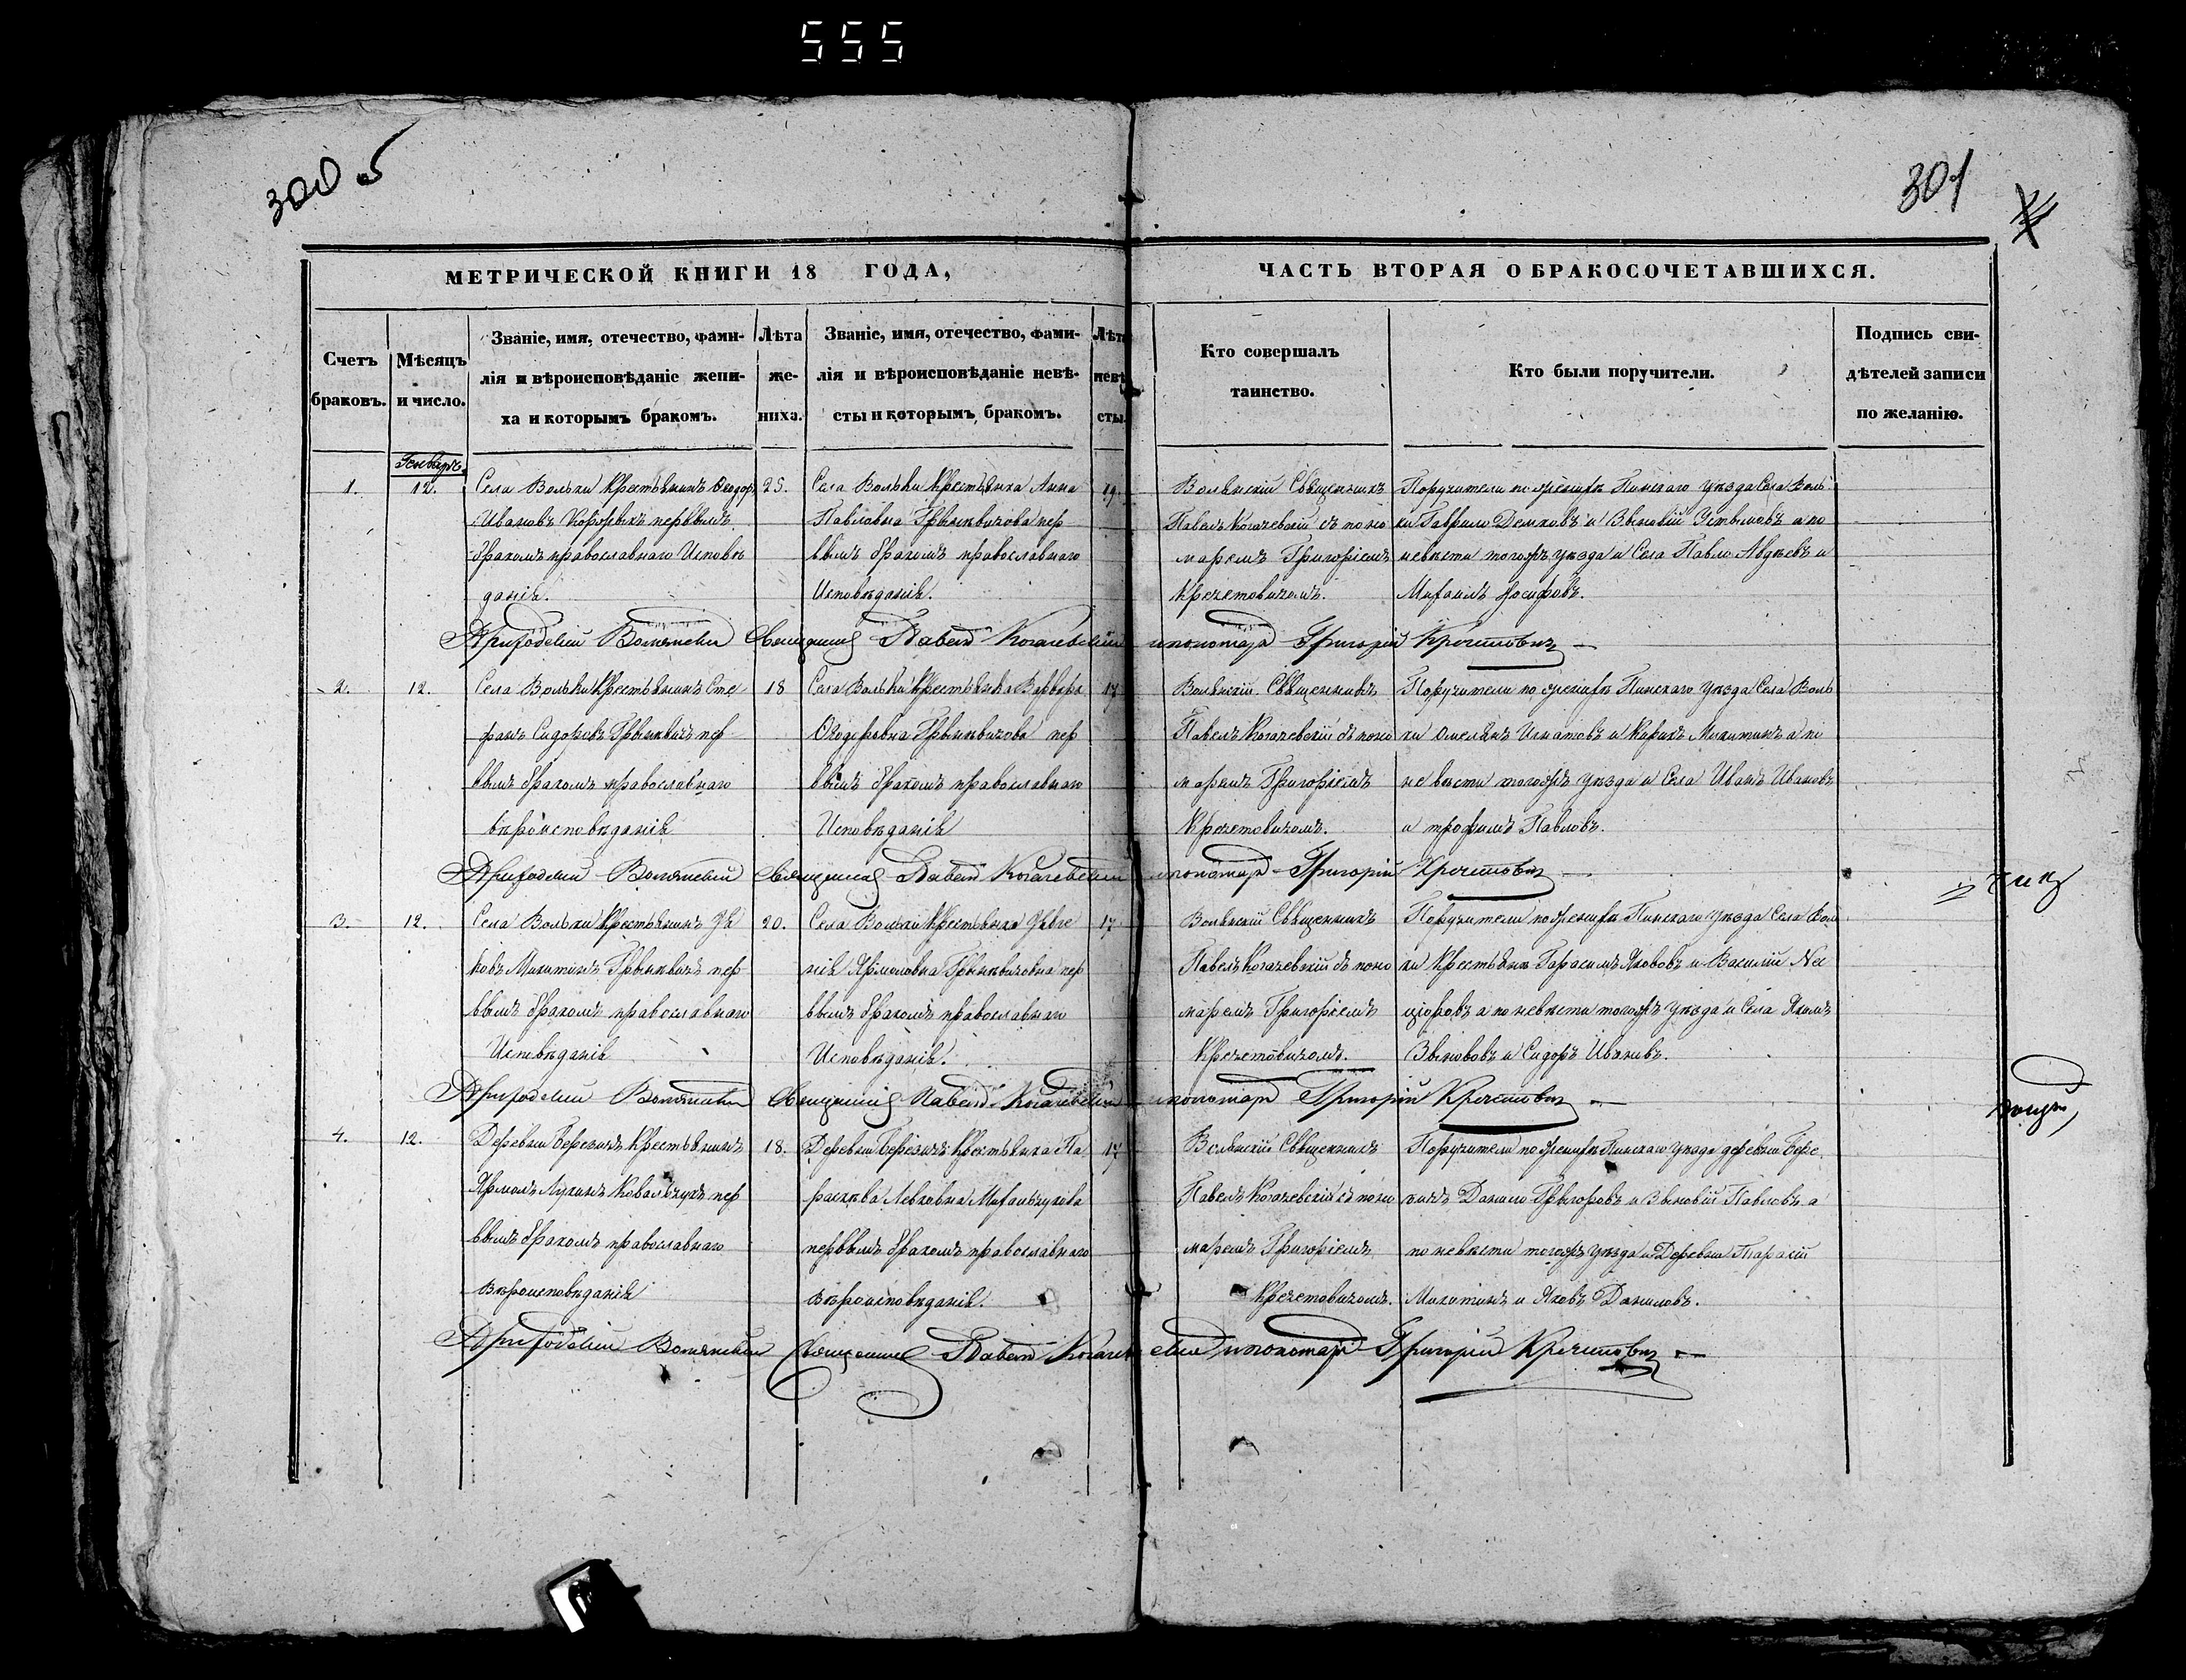 555
300 5
301
МЕТРИЧЕСКОЙ КНИГИ 18 ГОДА,
ЧАСТЬ ВТОРАЯ О БРАКОСОЧЕТАВШИХСЯ.
Счетъ
браковъ.
Мѣсяцъ
и число.
Званіе, имя, отечество, фами-
лія и вѣроисповѣданіе жени-
ха и которымъ бракомъ.
Лѣта
же-
ниха.
Званіе, имя, отечество, фами-
лія и вѣроисповѣданіе невѣ-
сты и которымъ бракомъ.
Лѣта
невѣ
сты.
Кто совершалъ
таинство.
Кто были поручители.
Подпись сви-
дѣтелей записи
по желанію.
Генварь.
1.
12.
Села Вольки Крестьянинъ Ѳеодоръ
Ивановъ первымъ
бракомъ православнаго Исповѣ
данія.
25.
Села Вольки Крестьянка Анна
Павловна Грынкевичова пер
вымъ бракомъ православнаго
Исповѣданія.
19.
Волянскій Священникъ
Павелъ Когачевскій съ поно
маремъ Григоріемъ
Кречетовичомъ.
Поручители по женихѣ Пинскаго уѣзда Села Воль
ки Гаврило Демковъ и Зѣновій Устимовъ а по
невѣсти тогожъ уѣзда и Села Павло Авдѣевъ и
Михаилъ Іосифовъ.
Приходскій Волянскій Священникъ Павелъ Когачевскій и пономарь Григорій Кречетовичъ
2.
12.
Села Вольки Крестьянинъ Сте
фанъ Сидоровъ Грынкевичъ пер
вымъ бракомъ православнаго
вѣроисповѣданія
18
Села Вольки Крестьянка Варвара
Ѳеодоровна Грынкевичова пер
вымъ бракомъ православнаго
Исповѣданія
17
Волянскій Священникъ
Павелъ Когачевскій съ поно
маремъ Григоріемъ
Кречетовичомъ.
Поручители по женихѣ Пинскаго уѣзда Села Воль
ки Омелянъ Игнатовъ и Никитинъ а по
невѣсти тогожъ уѣзда и Села Иванъ Ивановъ
и трофимъ Павловъ.
Приходскій Волянскій Священникъ Павелъ Когачевскій и пономарь Григорій Кречетовичъ
3.
12.
Села Вольки Крестьянинъ Я
ковъ Микитинъ Грынкевичъ пер
вымъ бракомъ православнаго
Исповѣданія
20.
Села Вольки Крестьянка Уѵге
нія Ярмоловна Грынкевичовна пер
вымъ бракомъ православнаго
Исповѣданія.
17
Волянскій Священникъ
Павелъ Когачевскій съ поно
маремъ Григоріемъ
Кречетовичомъ.
Поручители по женихѣ Пинскаго уѣзда Села Воль
ки Крестьяне Гарасимъ Яковъ и Василій
а по невѣсти тогожъ уѣзда и Села Якимъ
и Сидоръ Ивановъ.
Приходскій Волянскій Священникъ Павелъ Когачевскій и пономарь Григорій Кречетовичъ
4.
12.
Деревни Березичъ Крестьянинъ
Ярмолъ Лукинъ Ковальчукъ пер
вымъ бракомъ православнаго
Вѣроисповѣданія
18.
Деревни Березичъ Крестьянка Па
раскева Левковна Михальчукова
первымъ бракомъ православнаго
Вѣроисповѣданія.
17
Волянскій Священникъ
Павелъ Когачевскій съ поно
маремъ Григоріемъ
Кречетовичомъ.
Поручители по женихѣ Пинскаго уѣзда деревни Бере
зичъ Данило Григоровъ и Зѣновій Павловъ а
по невѣсти тогожъ уѣзда и Деревни Тарасій
Микитинъ и Яковъ Даниловъ.
Приходскій Волянскій Священникъ Павелъ Когачевскій и пономарь Григорій Кречетовичъ